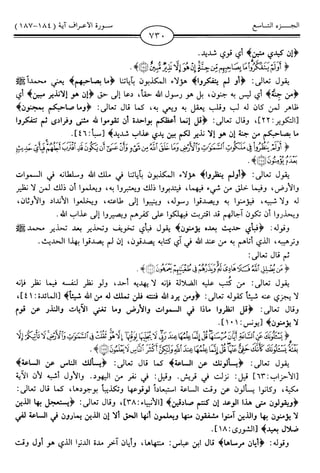 الجـــزء التـــاسع
سـورة الأعراف آية (١٨٤-١٨٧)
٧٣٠
﴿إن كيدي متين﴾ أي قوي شديد.
﴿ أَوَلَمْ يَتَفَكَّرُوا مَا بِصَاحِبِهِم مِّن جِنَّةٍ إِنْ هُوَ إِلَّا نَذِيرٌ مُّبِينٌ ﴾.
يقول تعالى: ﴿أو لم يتفكروا﴾ هؤلاء المكذبون بآياتنا ﴿ما بصاحبهم﴾ يعني محمداً ﷺ
﴿من جنة﴾ أي ليس به جنون، بل هو رسول الله حقاً، دعا إلى حق ﴿إن هو إلا نذير مبين﴾ أي
ظاهر لمن كان له لب وقلب يعقل به ويعي به، كما قال تعالى: ﴿وما صاحبكم بمجنون﴾
[التكوير: ٢٢]، وقال تعالى: ﴿قل إنما أعظكم بواحدة أن تقوموا لله مثنى وفرادى ثم تتفكروا
ما بصاحبكم من جنة إن هو إلا نذير لكم بين يدي عذاب شديد﴾ [سبأ: ٤٦].
﴿ أَوَلَمْ يَنظُرُوا فِي مَلَكُوتِ السَّمَاوَاتِ وَالْأَرْضِ وَمَا خَلَقَ اللَّهُ مِن شَيْءٍ وَأَنْ عَسَىٰ أَن يَكُونَ قَدِ اقْتَرَبَ أَجَلُهُمْ فَبِأَيِّ حَدِيثٍ
بَعْدَهُ يُؤْمِنُونَ ﴾.
يقول تعالى: ﴿أو لم ينظروا﴾ هؤلاء المكذبون بآياتنا في ملك الله وسلطانه في السموات
والأرض، وفيما خلق من شيء فيهما، فيتدبروا ذلك ويعتبروا به، ويعلموا أن ذلك لمن لا نظير
له ولا شبيه، فيؤمنوا به ويصدقوا رسوله، وينيبوا إلى طاعته، ويخلعوا الأنداد والأوثان،
ويحذروا أن تكون آجالهم قد اقتربت فيهلكوا على كفرهم ويصيروا إلى عذاب الله.
وقوله: ﴿فبأي حديث بعده يؤمنون﴾ يقول فبأي تخويف وتحذير بعد تحذير محمد ﷺ
وترهيبه، الذي أتاهم به من عند الله في آي كتابه يصدقون، إن لم يصدقوا بهذا الحديث.
ثم قال تعالى:
﴿ مَن يُضْلِلِ اللَّهُ فَلَا هَادِيَ لَهُ وَيَذَرُهُمْ فِي طُغْيَانِهِمْ يَعْمَهُونَ ﴾.
يقول تعالى: من كُتب عليه الضلالة فإنه لا يهديه أحد، ولو نظر لنفسه فيما نظر فإنه
لا يجزي عنه شيئاً كقوله تعالى: ﴿ومن يرد الله فتنته فلن تملك له من الله شيئاً﴾ [المائدة: ٤١]،
وقال تعالى: ﴿قل انظروا ماذا في السموات والأرض وما تغني الآيات والنذر عن قوم
لا يؤمنون﴾ [يونس: ١٠١].
﴿ يَسْأَلُونَكَ عَنِ السَّاعَةِ أَيَّانَ مُرْسَاهَا قُلْ إِنَّمَا عِلْمُهَا عِندَ رَبِّي لَا يُجَلِّيهَا لِوَقْتِهَا إِلَّا هُوَ ثَقُلَتْ فِي السَّمَاوَاتِ وَالْأَرْضِ لَا تَأْتِيكُمْ إِلَّا
بَغْتَةً يَسْأَلُونَكَ كَأَنَّكَ حَفِيٌّ عَنْهَا قُلْ إِنَّمَا عِلْمُهَا عِندَ اللَّهِ وَلَٰكِنَّ أَكْثَرَ النَّاسِ لَا يَعْلَمُونَ ﴾.
يقول تعالى: ﴿يسألونك عن الساعة﴾ كما قال تعالى: ﴿يسألك الناس عن الساعة﴾
[الأحزاب: ٦٣] قيل: نزلت في قريش. وقيل: في نفر من اليهود. والأول أشبه لأن الآية
مكية، وكانوا يسألون عن وقت الساعة استبعاداً لوقوعها وتكذيباً بوجودها، كما قال تعالى:
﴿ويقولون متى هذا الوعد إن كنتم صادقين﴾ [الأنبياء: ٣٨]، وقال تعالى: ﴿يستعجل بها الذين
لا يؤمنون بها والذين آمنوا مشفقون منها ويعلمون أنها الحق ألا إن الذين يمارون في الساعة لفي
ضلال بعيد﴾ [الشورى: ١٨].
وقوله: ﴿أيان مرساها﴾ قال ابن عباس: منتهاها، وأيان آخر مدة الدنيا الذي هو أول وقت